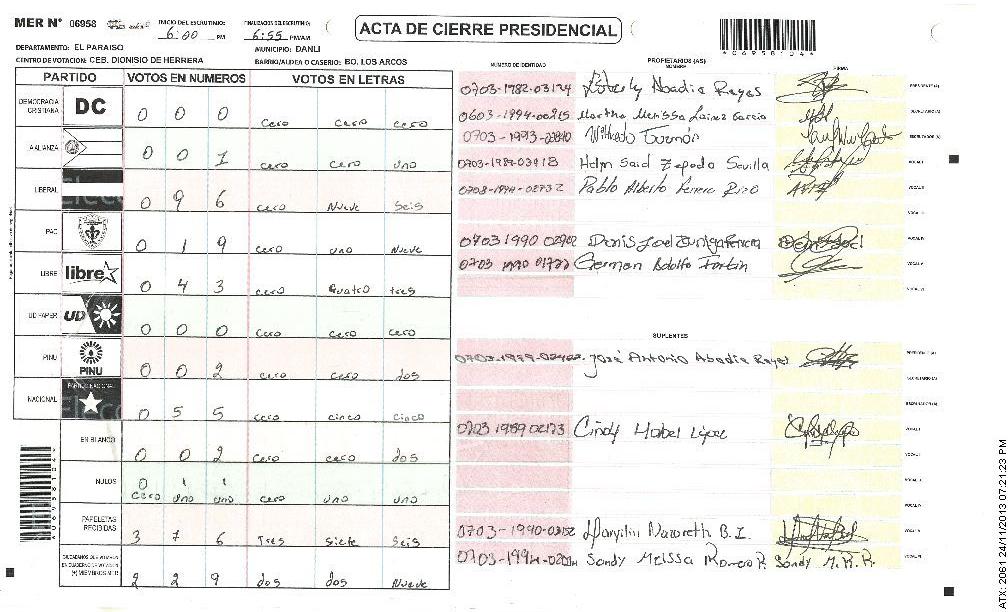 MER N° 06958
INICIO DEL ESCRUTINIO:
6:00 PM
FINALIZACION DEL ESCRUTINIO:
6:55 PM/AM
ACTA DE CIERRE PRESIDENCIAL
DEPARTAMENTO: EL PARAISO
MUNICIPIO: DANLI
CENTRO DE VOTACION: CEB. DIONISIO DE HERRERA
BARRIO/ALDEA O CASERIO: BO. LOS ARCOS
PARTIDO VOTOS EN NUMEROS VOTOS EN LETRAS
DEMOCRACIA CRISTIANA DC 0 0 0 cero cero cero
A ALIANZA 0 0 1 cero cero uno
LIBERAL 0 9 6 cero Nueve Seis
PAC 0 1 9 cero uno Nueve
LIBRE libre 0 4 3 cero Quatro tres
UD FAPER UD 0 0 0 cero cero cero
PINU PINU 0 0 2 cero cero dos
NACIONAL PARTIDO NACIONAL 0 5 5 cero cinco cinco
EN BLANCO 0 0 2 cero cero dos
NULOS 0 1 1 cero uno uno
cero uno uno
PAPELETAS RECIBIDAS 3 7 6 Tres Siete Seis
CIUDADANOS QUE VOTARON EN CUADERNO DE VOTACION (+) MIEMBROS MER 2 2 9 dos dos Nueve
NUMERO DE IDENTIDAD
PROPIETARIOS (AS)
NOMBRE
FIRMA
0703-1982-03174 Abadia Reyes PRESIDENTE (A)
0603-1994-00215 Martha Melissa Lainez Garcia SECRETARIO (A)
0703-1993- Wilfredo Guzmán ESCRUTADOR (A)
0703-1989-03918 Said Zepeda Sevilla VOCAL I
0703-1994-02732 Pablo Alberto VOCAL II
0703 1990 02902 Denis Joel Zuniga Ferrera VOCAL IV
0703 1990 01722 German Adolfo Fortin VOCAL V
SUPLENTES
José Antonio Abadia Reyes PRESIDENTE (A)
SECRETARIO (A)
ESCRUTADOR (A)
0703 1989 02173 Cindy Mabel López VOCAL I
VOCAL II
0703-1990-03152 Nazareth B. I. VOCAL V
Sandy Melissa Romero R. Sandy M. R. R.
0 6 9 5 8 1 0 4 4
ATX: 2061 24/11/2013 07:21:23 PM